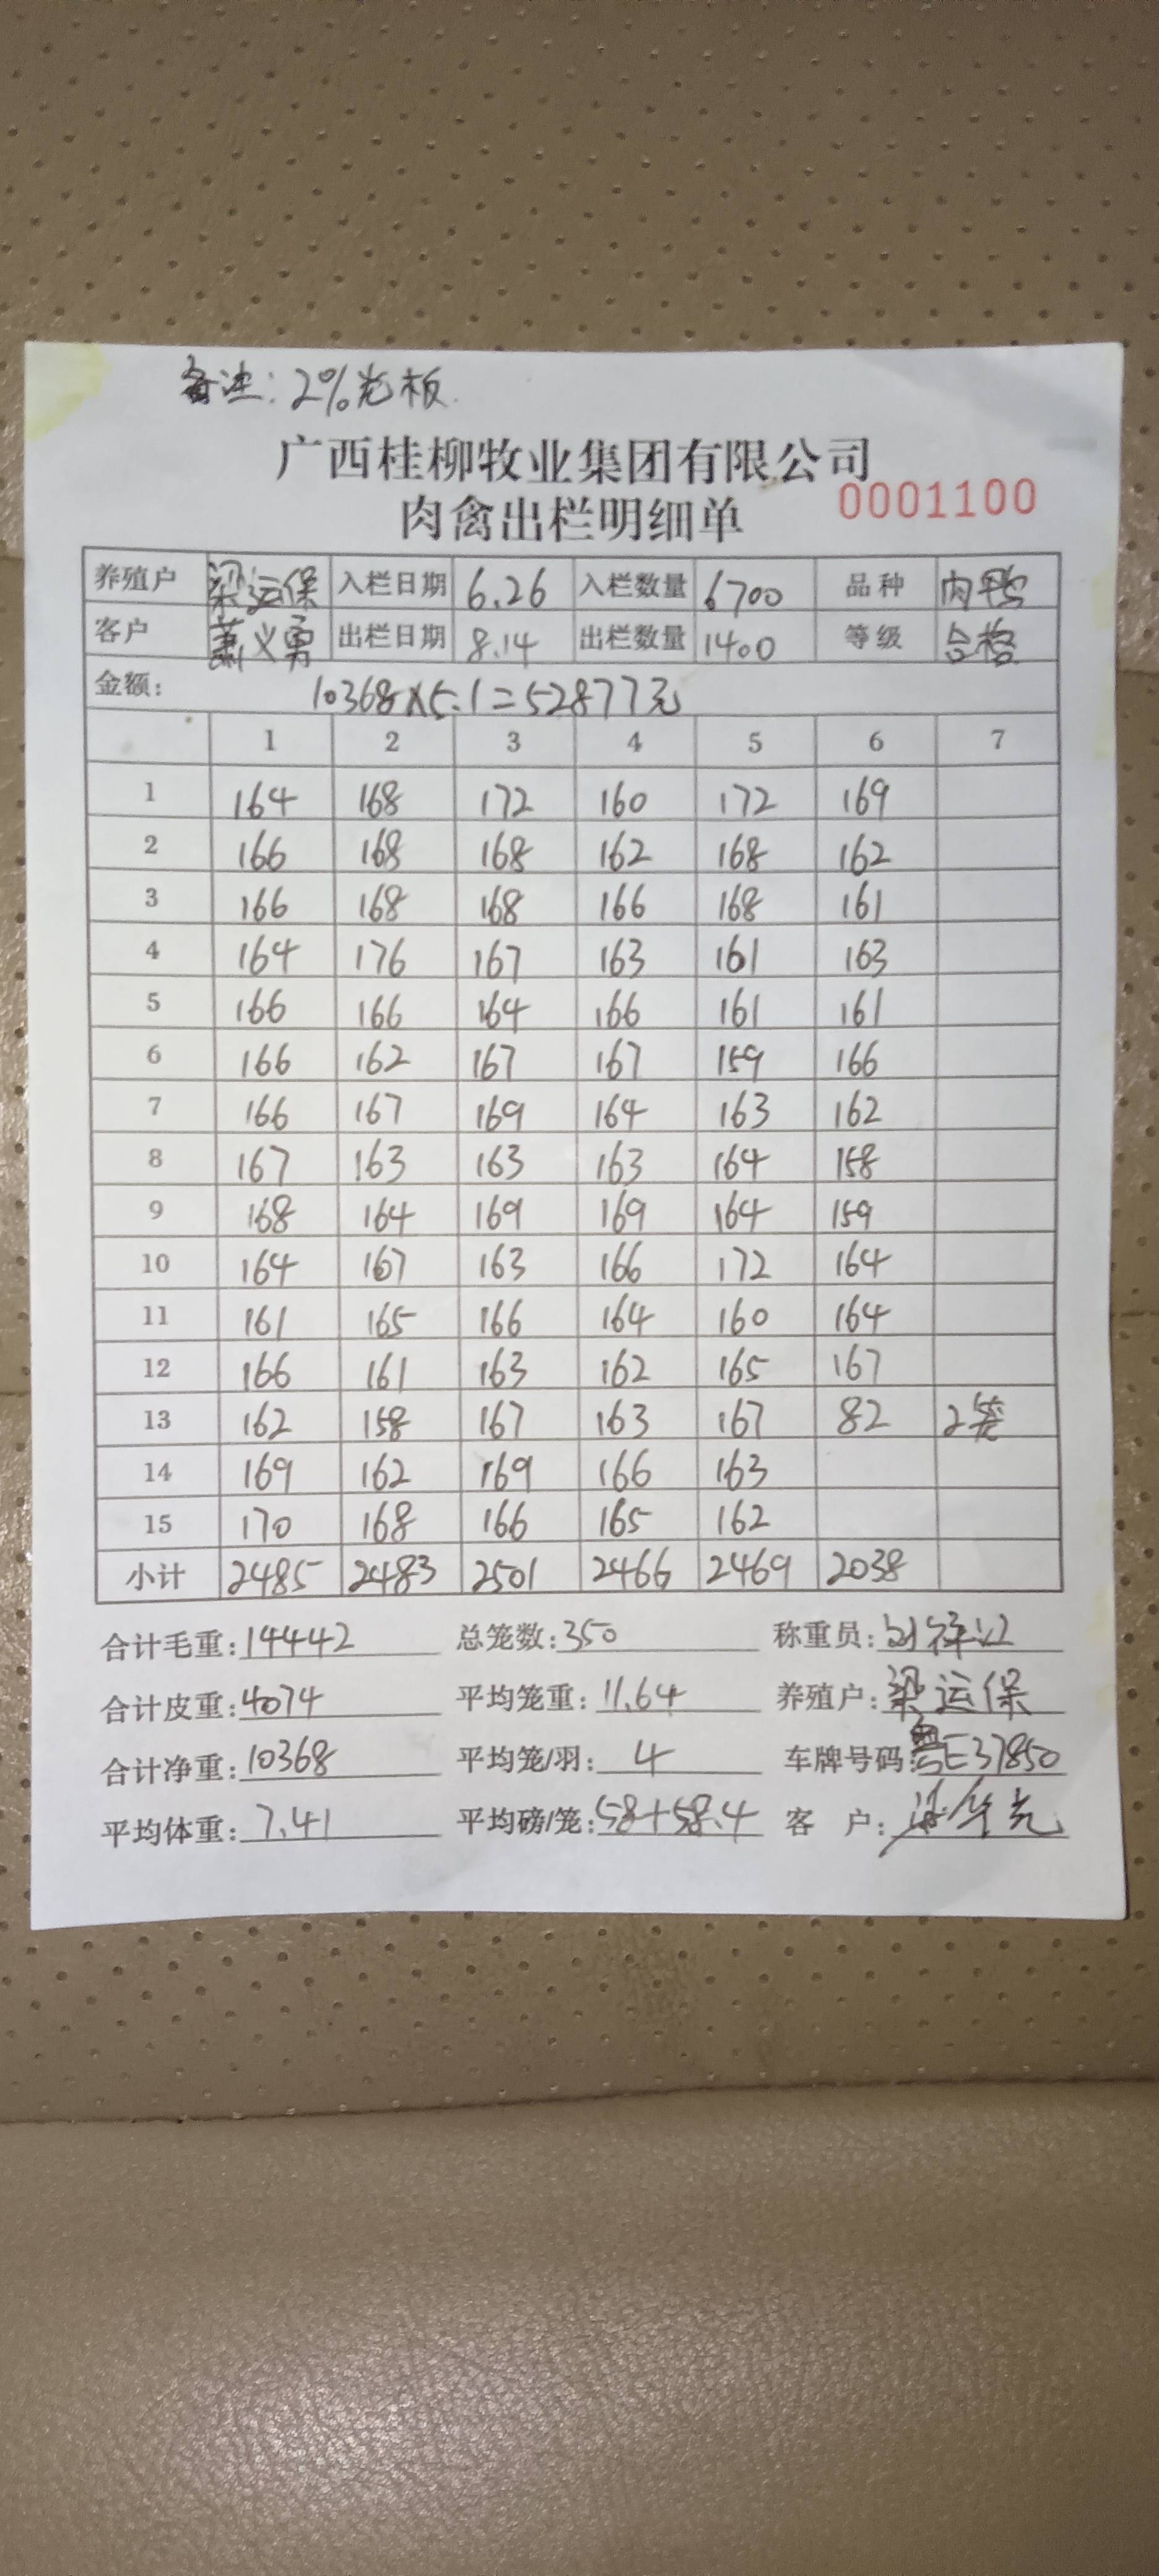 备注: 2%光板.
广西桂柳牧业集团有限公司
肉禽出栏明细单 0001100
养殖户 梁运保 入栏日期 6.26 入栏数量 6700 品种 肉鸭
客户 萧义勇 出栏日期 8.14 出栏数量 1400 等级 合格
金额: 10368×5.1=52877元
1 2 3 4 5 6 7
1 164 168 172 160 172 169
2 166 168 168 162 168 162
3 166 168 168 166 168 161
4 164 176 167 163 161 163
5 166 166 164 166 161 161
6 166 162 167 167 159 166
7 166 167 169 164 163 162
8 167 163 163 163 164 158
9 168 164 169 169 164 159
10 164 167 163 166 172 164
11 161 165 166 164 160 164
12 166 161 163 162 165 167
13 162 158 167 163 167 82 2笼
14 169 162 169 166 163
15 170 168 166 165 162
小计 2485 2483 2501 2466 2469 2038
合计毛重: 14442 总笼数: 350 称重员:
合计皮重: 4074 平均笼重: 11.64 养殖户: 梁运保
合计净重: 10368 平均笼/羽: 4 车牌号码: 粤E37850
平均体重: 7.41 平均磅/笼: 58+58.4 客 户: